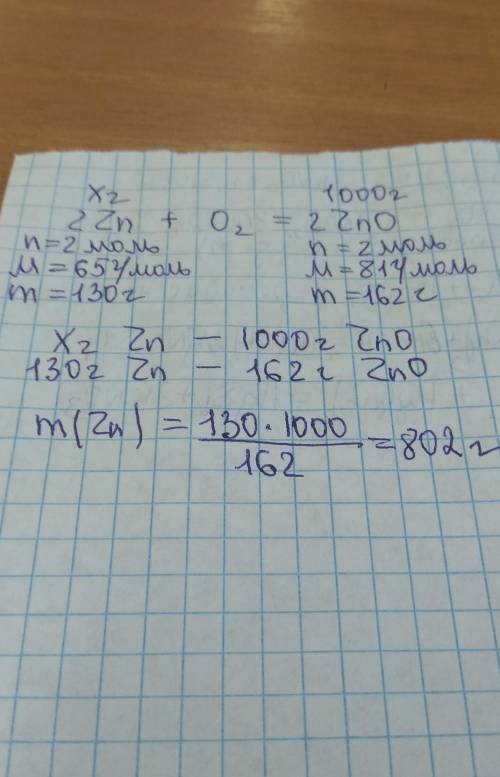 xг 1000г
2Zn + O₂ = 2ZnO
n=2моль n=2моль
M=65г/моль M=81г/моль
m=130г m=162г
xг Zn — 1000г ZnO
130г Zn — 162г ZnO
m(Zn) = 130·1000/162 = 802г